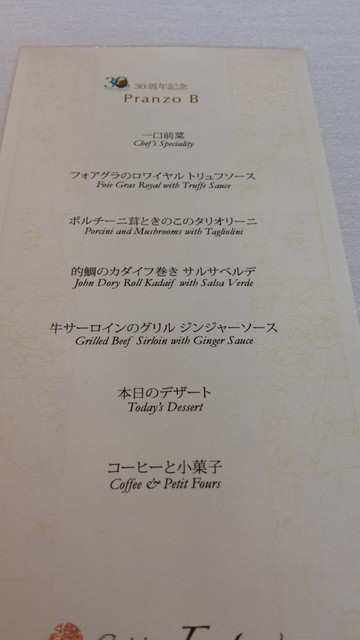 30 30周年記念
Pranzo B
一口前菜
Chef's Speciality
フォアグラのロワイヤル トリュフソース
Foie Gras Royal with Truffe Sauce
ポルチーニ茸ときのこのタリオリーニ
Porcini and Mushrooms with Tagliolini
的鯛のカダイフ巻き サルサベルデ
John Dory Roll Kadaif with Salsa Verde
牛サーロインのグリル ジンジャーソース
Grilled Beef Sirloin with Ginger Sauce
本日のデザート
Today's Dessert
コーヒーと小菓子
Coffee & Petit Fours